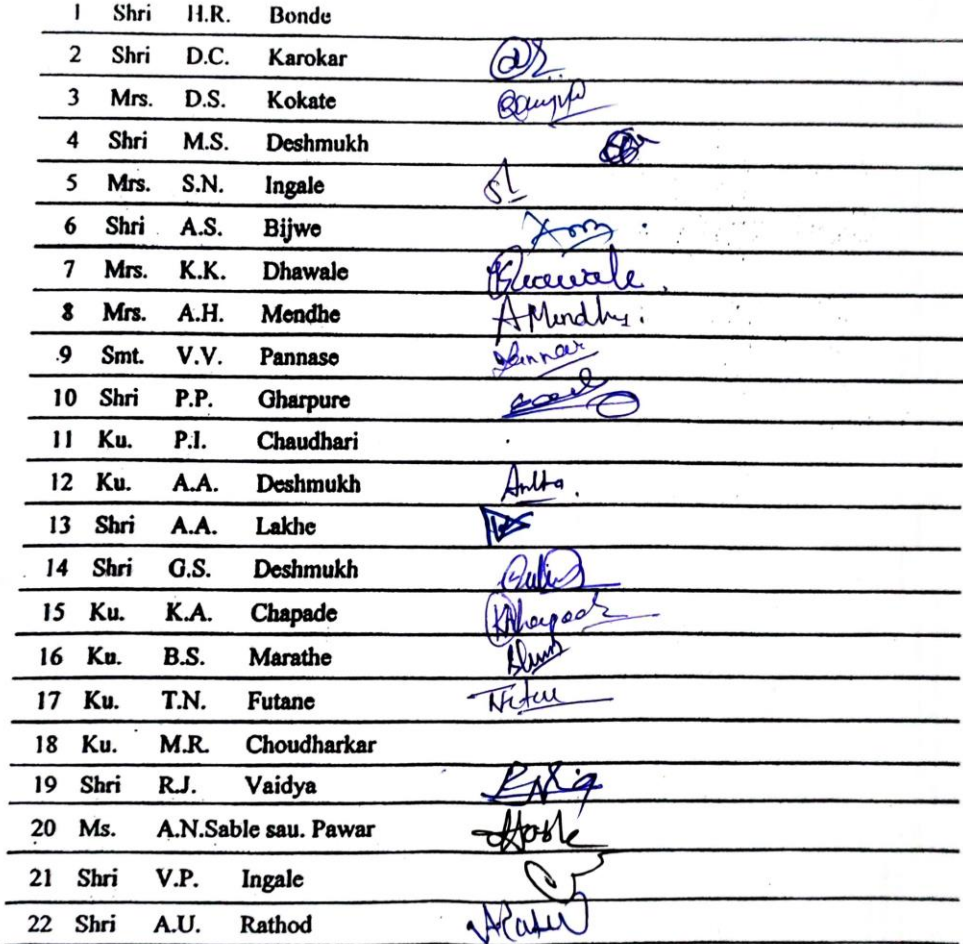 1 Shri H.R. Bonde
2 Shri D.C. Karokar
3 Mrs. D.S. Kokate
4 Shri M.S. Deshmukh
5 Mrs. S.N. Ingale
6 Shri A.S. Bijwe
7 Mrs. K.K. Dhawale
8 Mrs. A.H. Mendhe AMendhe.
9 Smt. V.V. Pannase
10 Shri P.P. Gharpure
11 Ku. P.I. Chaudhari
12 Ku. A.A. Deshmukh
13 Shri A.A. Lakhe
14 Shri G.S. Deshmukh
15 Ku. K.A. Chapade
16 Ku. B.S. Marathe
17 Ku. T.N. Futane
18 Ku. M.R. Choudharkar
19 Shri R.J. Vaidya
20 Ms. A.N.Sable sau. Pawar
21 Shri V.P. Ingale
22 Shri A.U. Rathod